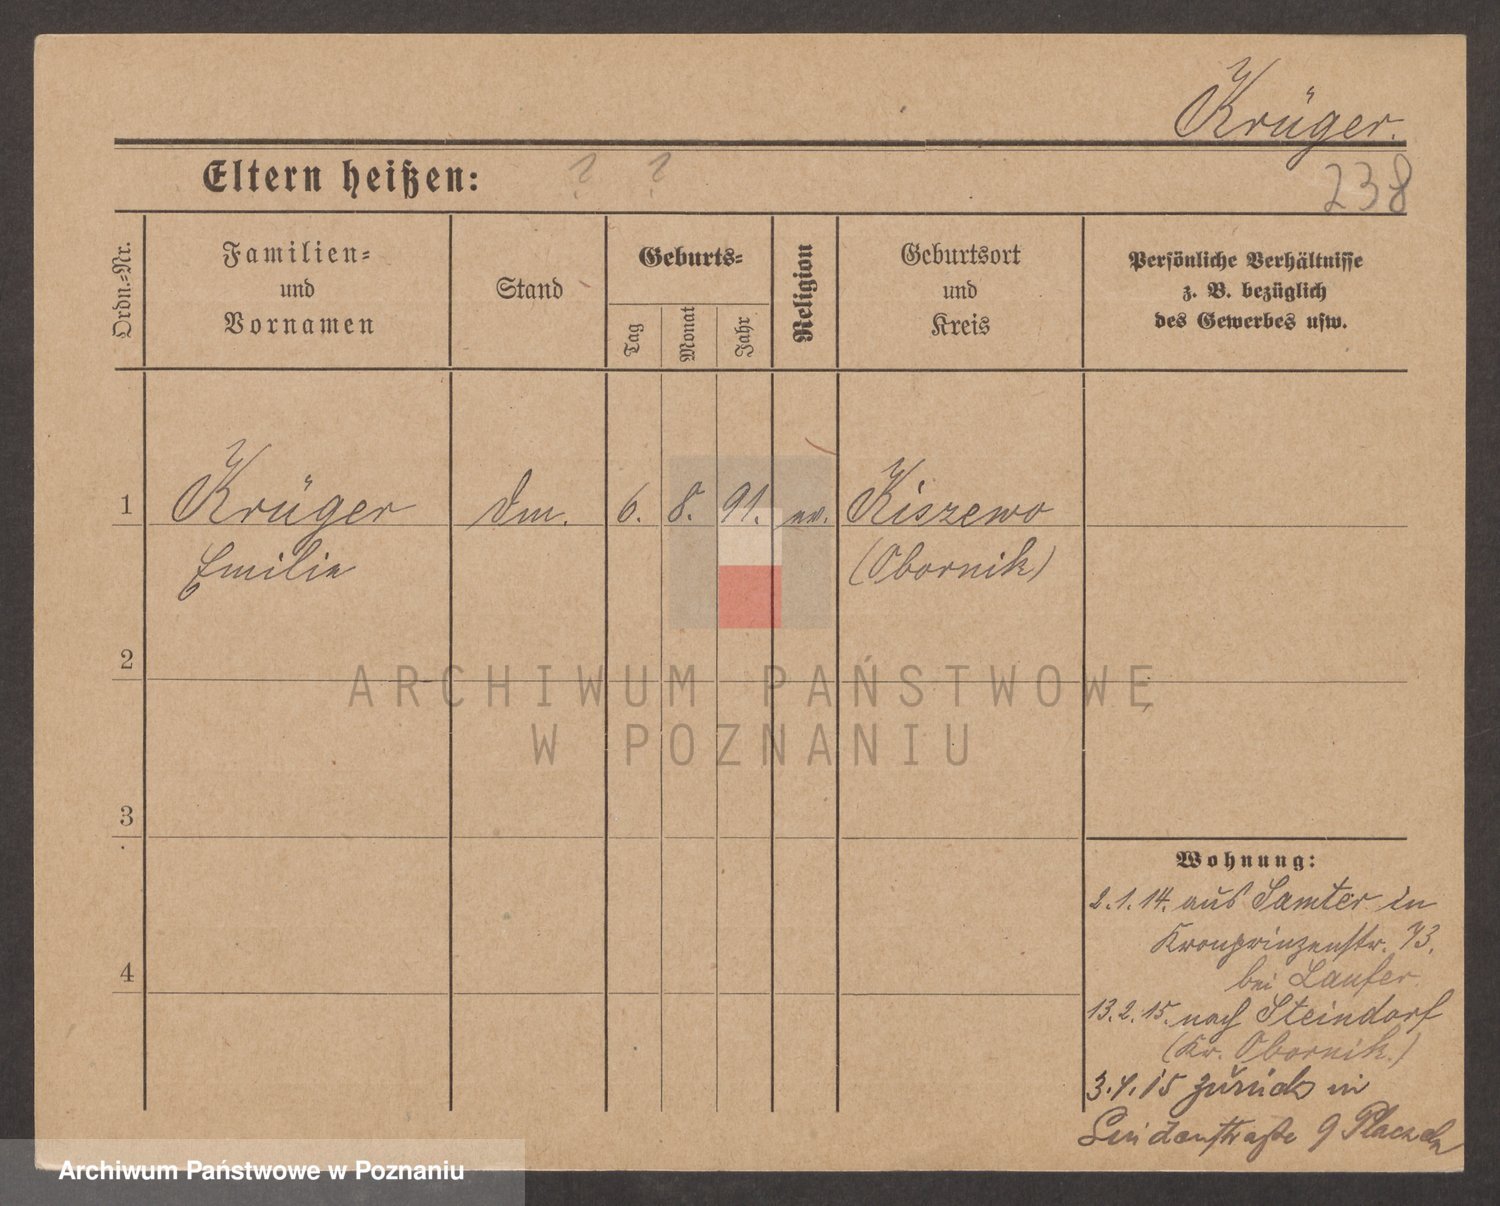 Krüger.
Eltern heißen: ? ?
238
Ordn.-Nr.
Familien-
und
Vornamen
Stand
Geburts-
Tag
Monat
Jahr
Religion
Geburtsort
und
Kreis
Persönliche Verhältnisse
z. B. bezüglich
des Gewerbes usw.
1 Krüger 6. 8. 91. ev. Kiszewo
Emilie (Obornik)
2
ARCHIWUM PAŃSTWOWE
W POZNANIU
3
Wohnung:
2.1.14. aus Samter in
Kronprinzenstr. 73.
bei Laufer.
4
13.2.15. nach Steindorf
(Kr. Obornik.)
3.4.15 zurück in
Lindenstraße 9
Archiwum Państwowe w Poznaniu